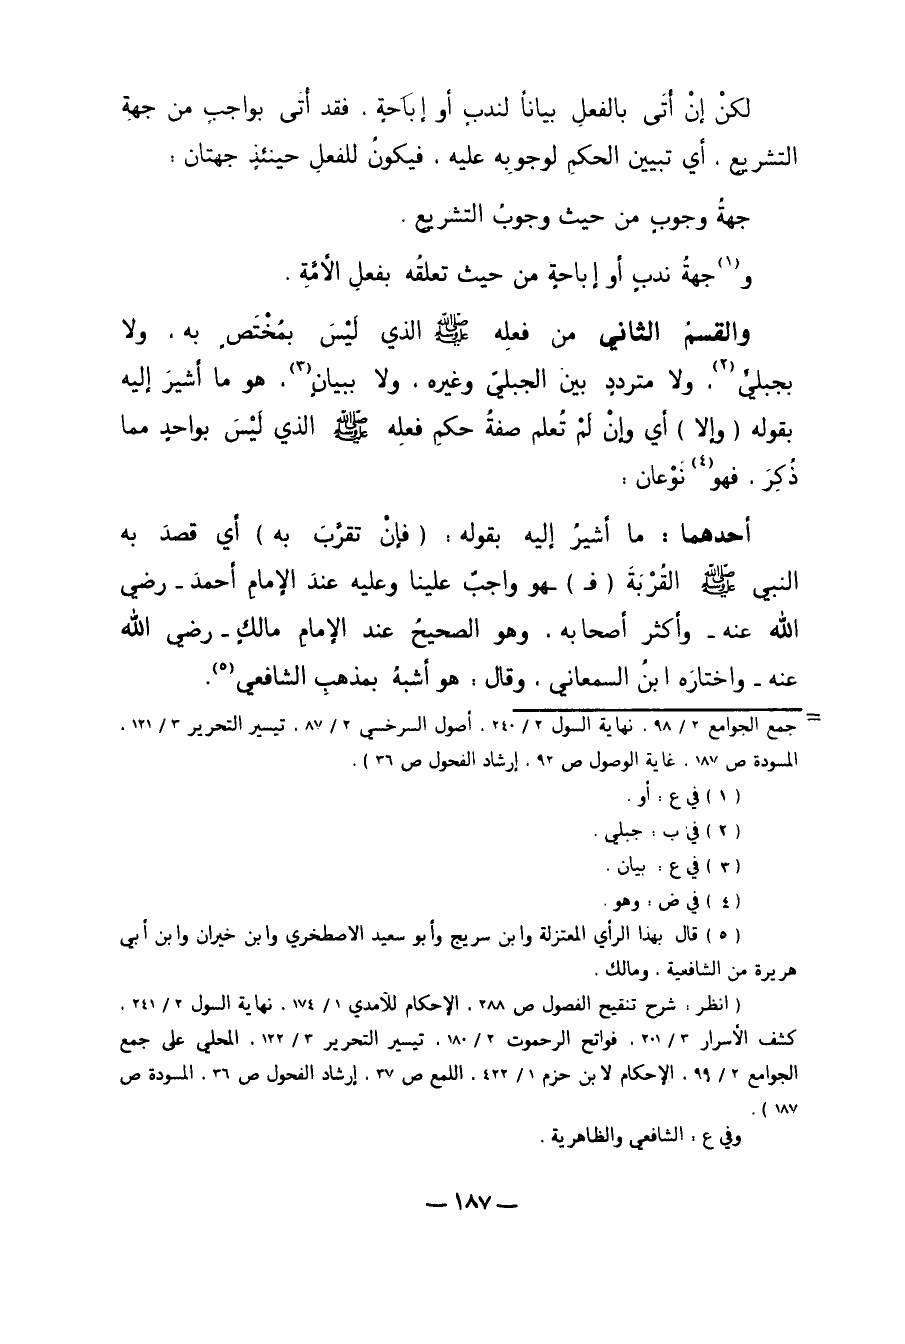 لكنْ إنْ أَتَى بالفعلِ بياناً لندبٍ أو إباحةٍ ، فقد أَتى بواجبٍ من جهةِ
التشريعِ ، أي تبيين الحكمِ لوجوبِه عليه ، فيكونُ للفعلِ حينئذٍ جهتان :
جهةُ وجوبٍ من حيث وجوبُ التشريعِ .
و(١)جهةُ ندبٍ أو إباحةٍ من حيث تعلقُه بفعلِ الأمَّةِ .
والقسمُ الثاني من فعلِه ﷺ الذي لَيْسَ بمُخْتَصٍ به ، ولا
بجبليٍّ(٢)، ولا مترددٍ بينَ الجبليّ وغيره ، ولا ببيانٍ(٣)، هو ما أشيرَ إليه
بقوله ( وإلا ) أي وإنْ لَمْ تُعلم صفةُ حكمِ فعلِه ﷺ الذي لَيْسَ بواحدٍ مما
ذُكِرَ ، فهو(٤) نَوْعان :
أحدهما : ما أشيرُ إليه بقوله : ( فإنْ تقرَّبَ به ) أي قصدَ به
النبي ﷺ القُرْبَةَ ( فـ ) ـهو واجبٌ علينا وعليه عندَ الإمامِ أحمدَ ـ رضي
الله عنه ـ وأكثر أصحابه ، وهو الصحيحُ عند الإمامِ مالكٍ ـ رضي الله
عنه ـ واختارَه ابنُ السمعاني ، وقال : هو أشبهُ بمذهبِ الشافعي(٥).
= جمع الجوامع ٢ / ٩٨ ، نهاية السول ٢ / ٢٤٠ ، أصول السرخسي ٢ / ٨٧ ، تيسير التحرير ٣ / ١٢١ ،
المسودة ص ١٨٧ ، غاية الوصول ص ٩٢ ، إرشاد الفحول ص ٣٦ ) .
( ١ ) في ع : أو .
( ٢ ) في ب : جبلي .
( ٣ ) في ع : بيان .
( ٤ ) في ض : وهو .
( ٥ ) قال بهذا الرأي المعتزلة وابن سريج وأبو سعيد الاصطخري وابن خيران وابن أبي
هريرة من الشافعية ، ومالك .
( انظر : شرح تنقيح الفصول ص ٢٨٨ ، الإحكام للآمدي ١ / ١٧٤ ، نهاية السول ٢ / ٢٤١ ،
كشف الأسرار ٣ / ٢٠١ ، فواتح الرحموت ٢ / ١٨٠ ، تيسير التحرير ٣ / ١٢٢ ، المحلي على جمع
الجوامع ٢ / ٩٩ ، الإحكام لابن حزم ١ / ٤٢٢ ، اللمع ص ٣٧ ، إرشاد الفحول ص ٣٦ ، المسودة ص
١٨٧ ) .
وفي ع : الشافعي والظاهرية .
— ١٨٧ —